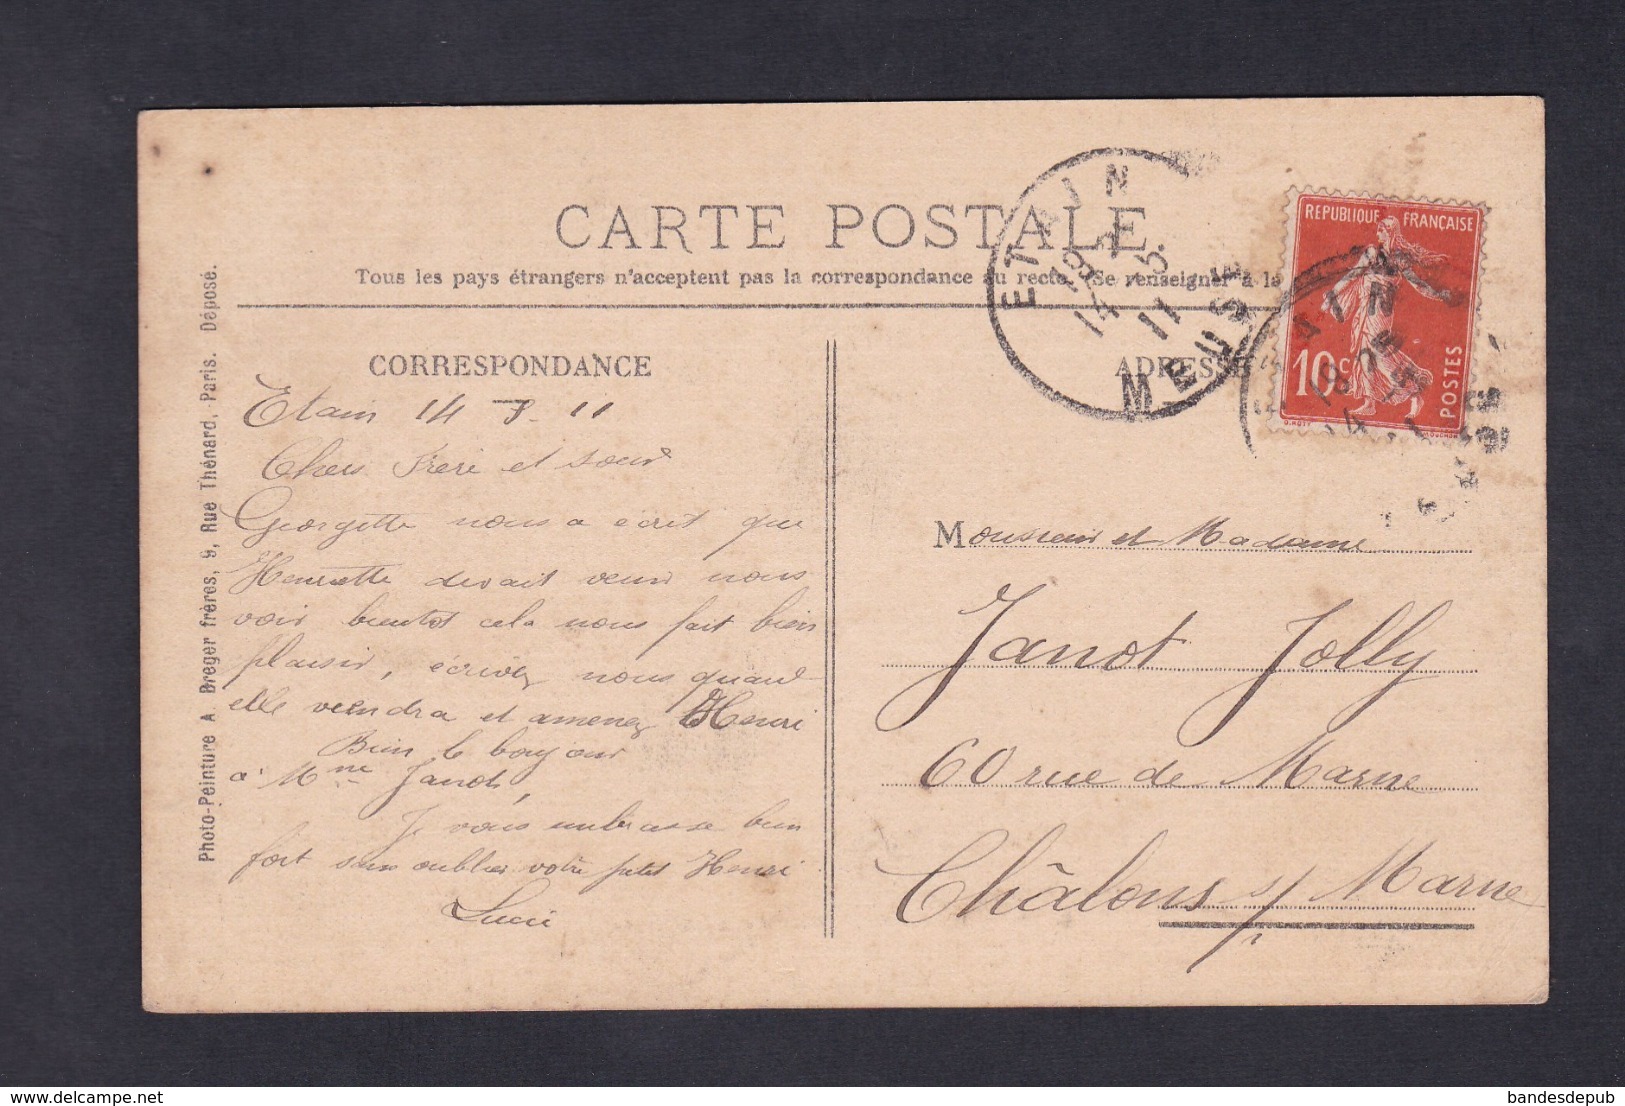 CARTE POSTALE
Tous les pays étrangers n'acceptent pas la correspondance au recto. (Se renseigner à la
CORRESPONDANCE
Etain 14 11
Chers Frère et sœur
Georgette nous a écrit que
Henriette devait venir nous
voir bientot cela nous fait bien
plaisir, écrivez nous quand
elle veindra et amenez Henri
Bien le bonjour
a Mme Janot,
Je vous embrasse bien
fort sans oublier votre petit Henri
Lucie
Photo-Peinture A. Breger frères, 9, Rue Thénard, Paris. Déposé.
ADRESSE
Monsieur et Madame
Janot Jolly
60 rue de Marne
Châlons s/ Marne
ETAIN
19 14 5 11
MEUSE
REPUBLIQUE FRANÇAISE
10c
POSTES
O. ROTY
bandesdepub